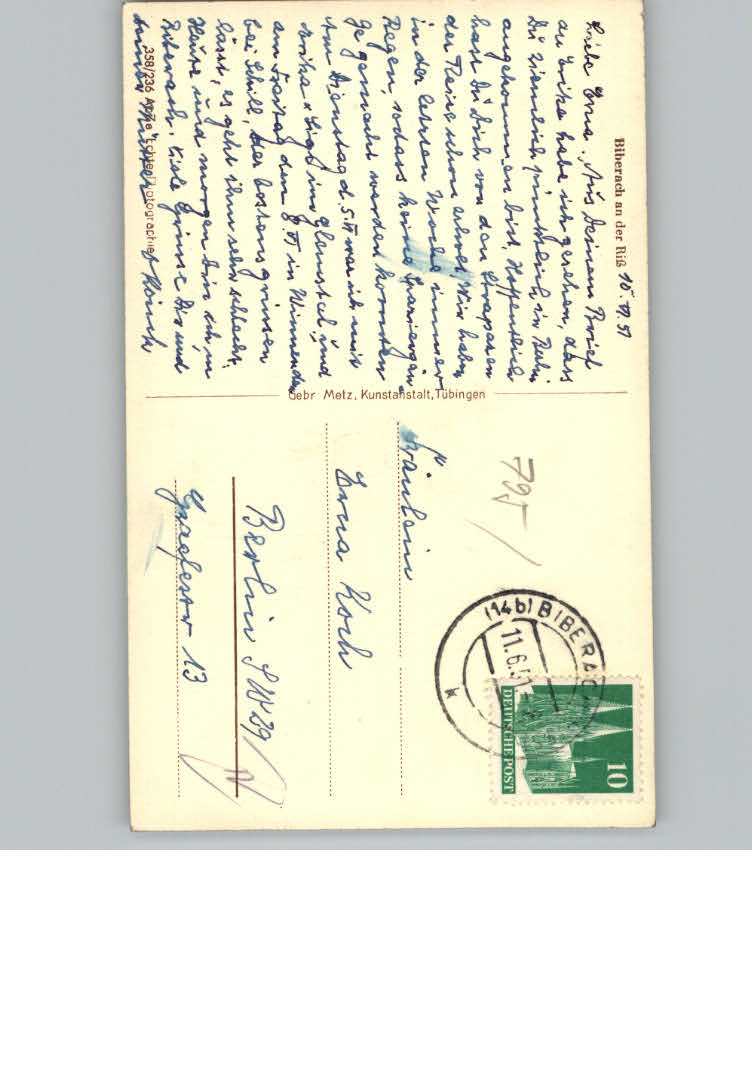 Biberach an der Riß
10.VI.51
Liebe Erna. Aus Deinem Brief
an Erika habe ich gesehen, dass
Du ziemlich pünktlich in Berlin
angekommen bist. Hoffentlich
hast Du Dich von den Strapazen
der Reise schon erholt. Wir haben
in der letzten Woche immer
Regen, sodass keine
gemacht werden konnten
Am Dienstag d. 5.VI war ich mit
Erika im und
am Freitag den 8.VI in Winnenden
bei Schill, der bestens grüssen
lässt, es geht ihm sehr schlecht.
Heute und morgen bin ich in
Biberach. Viele Grüsse Dir und
358/236 Echte Photographie
Gebr Metz, Kunstanstalt, Tübingen
Fräulein
Erna Koch
Berlin SW 29
Graefestr 13
725
(14b) BIBERACH
11.6.51
k
DEUTSCHE POST
10